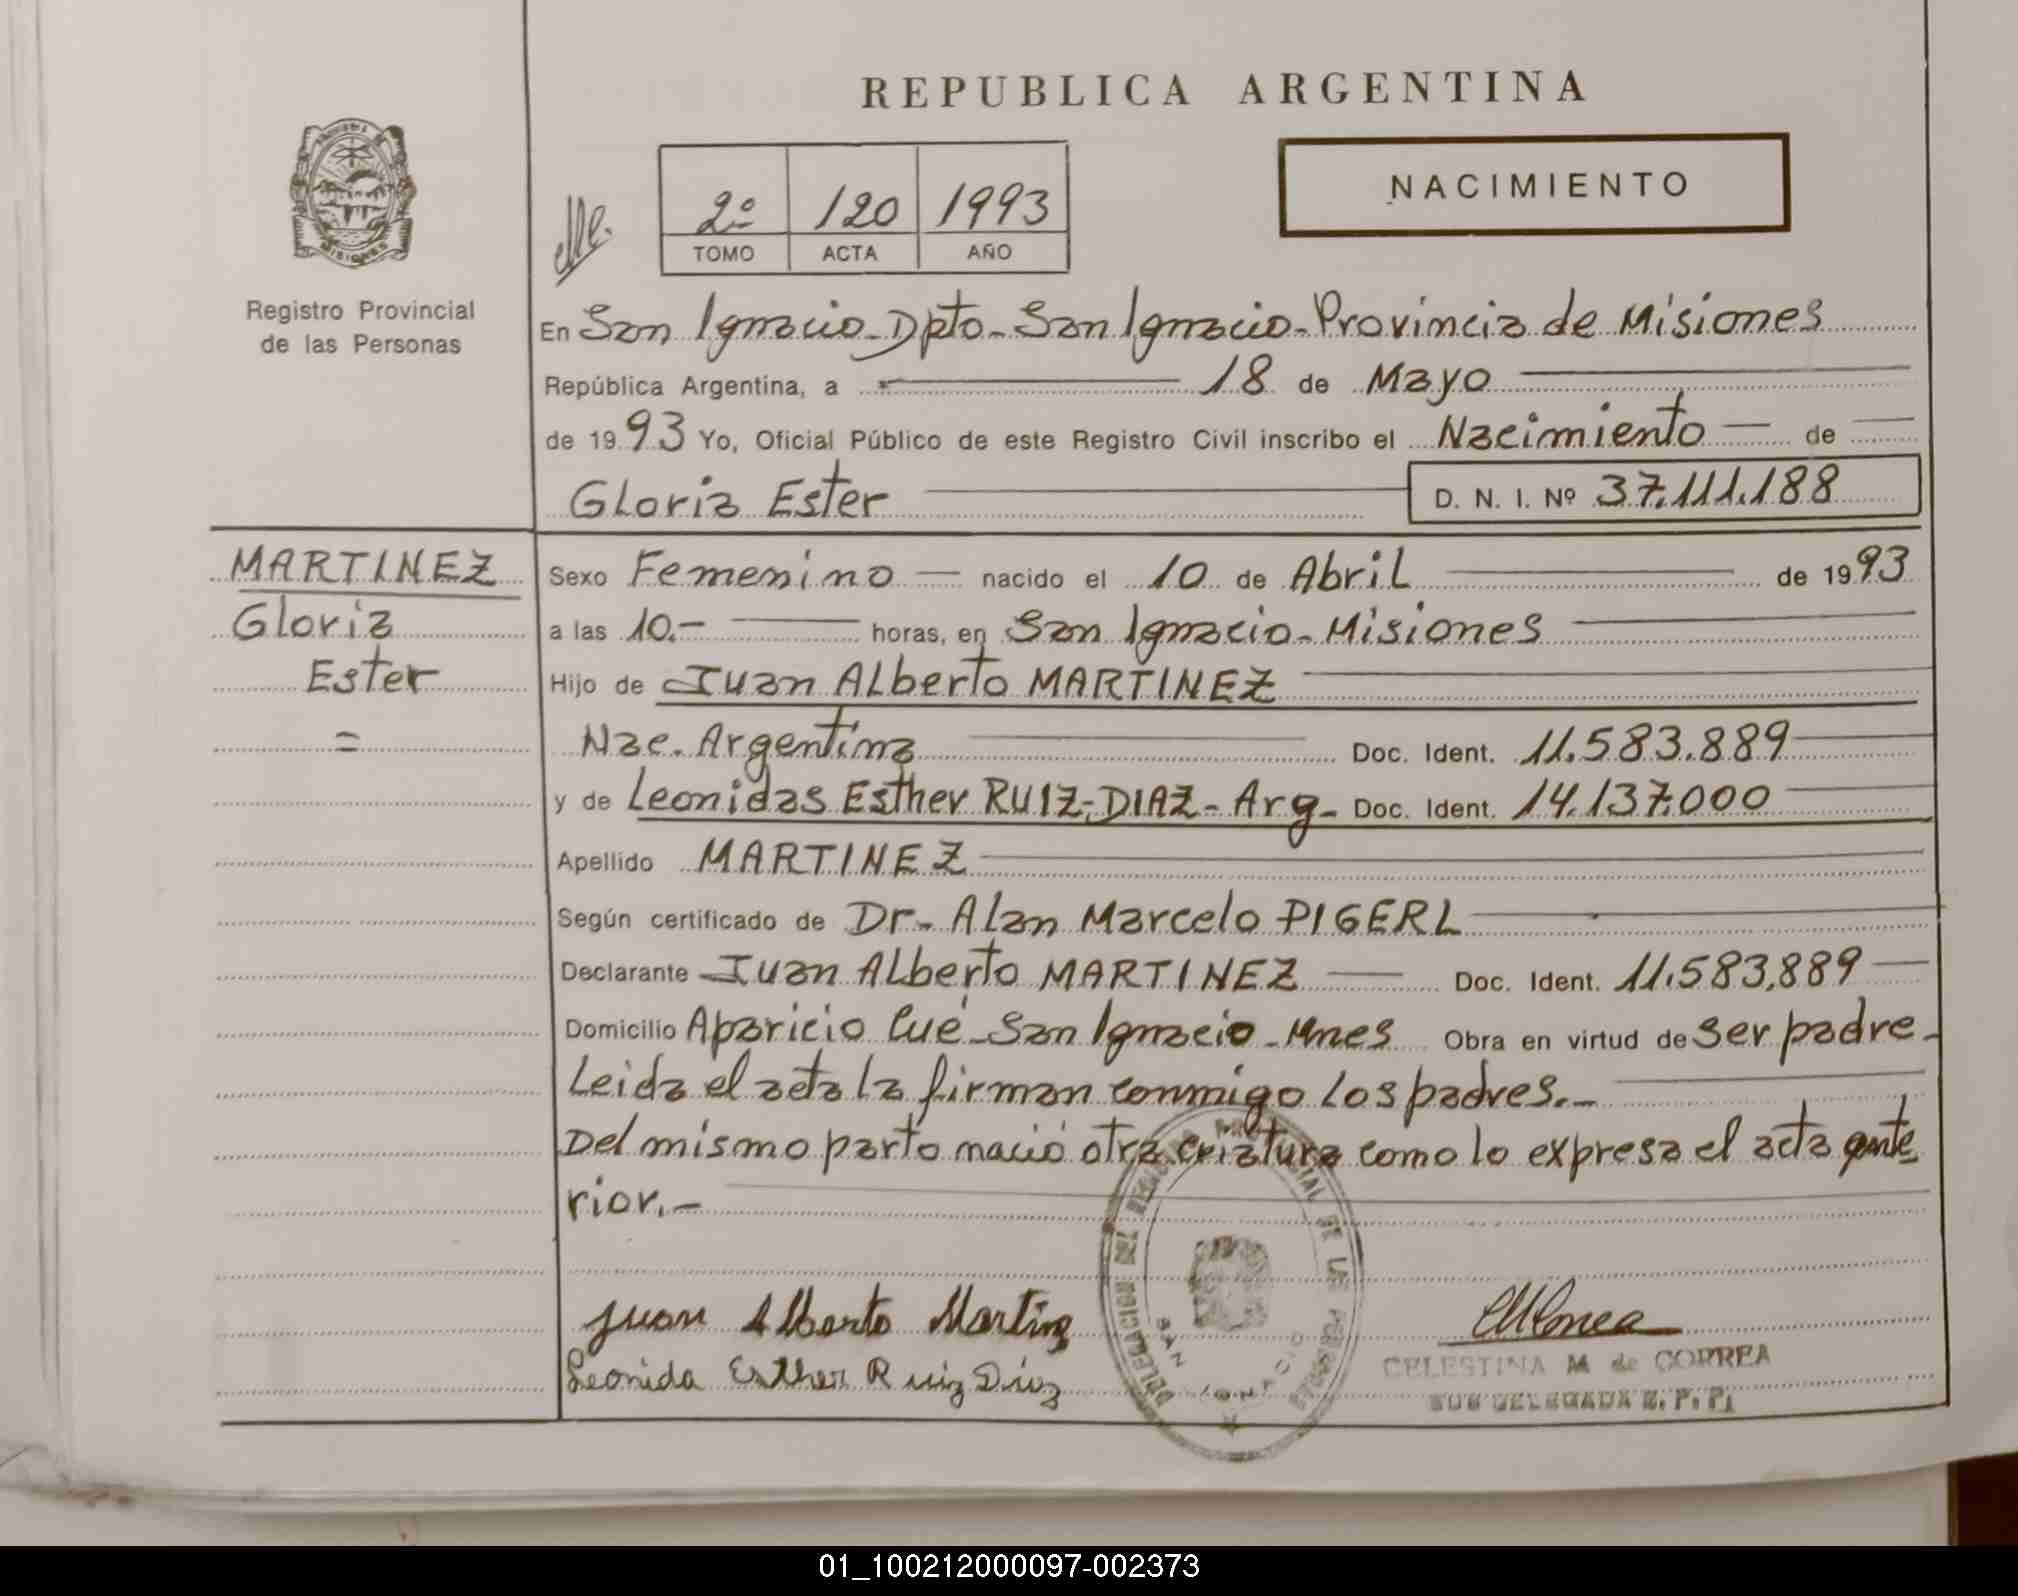 REPUBLICA ARGENTINA
NACIMIENTO
2º 120 1993
TOMO ACTA AÑO
Registro Provincial
de las Personas
En San Ignacio - Dpto - San Ignacio - Provincia de Misiones
República Argentina, a 18 de Mayo
de 1993 Yo, Oficial Público de este Registro Civil inscribo el Nacimiento de
Gloria Ester D. N. I. Nº 37.111.188
MARTINEZ
Gloria
Ester
=
Sexo Femenino nacido el 10 de Abril de 1993
a las 10.- horas, en San Ignacio - Misiones
Hijo de Juan Alberto MARTINEZ
Nac. Argentina Doc. Ident. 11.583.889
y de Leonidas Esther RUIZ-DIAZ - Arg - Doc. Ident. 14.137.000
Apellido MARTINEZ
Según certificado de Dr - Alan Marcelo PIGERL
Declarante Juan Alberto MARTINEZ Doc. Ident. 11.583.889
Domicilio Aparicio Cué - San Ignacio - Mnes Obra en virtud de ser padre -
Leida el acta la firman conmigo los padres.-
Del mismo parto nació otra criatura como lo expresa el acta ante
rior.-
Juan Alberto Martinez
Leonida Esther Ruiz Diaz
CELESTINA M de CORREA
SUB DELEGADA R. P. P.
DELEGACION DEL REGISTRO PROVINCIAL DE LAS PERSONAS
SAN IGNACIO
MISIONES
01_100212000097-002373